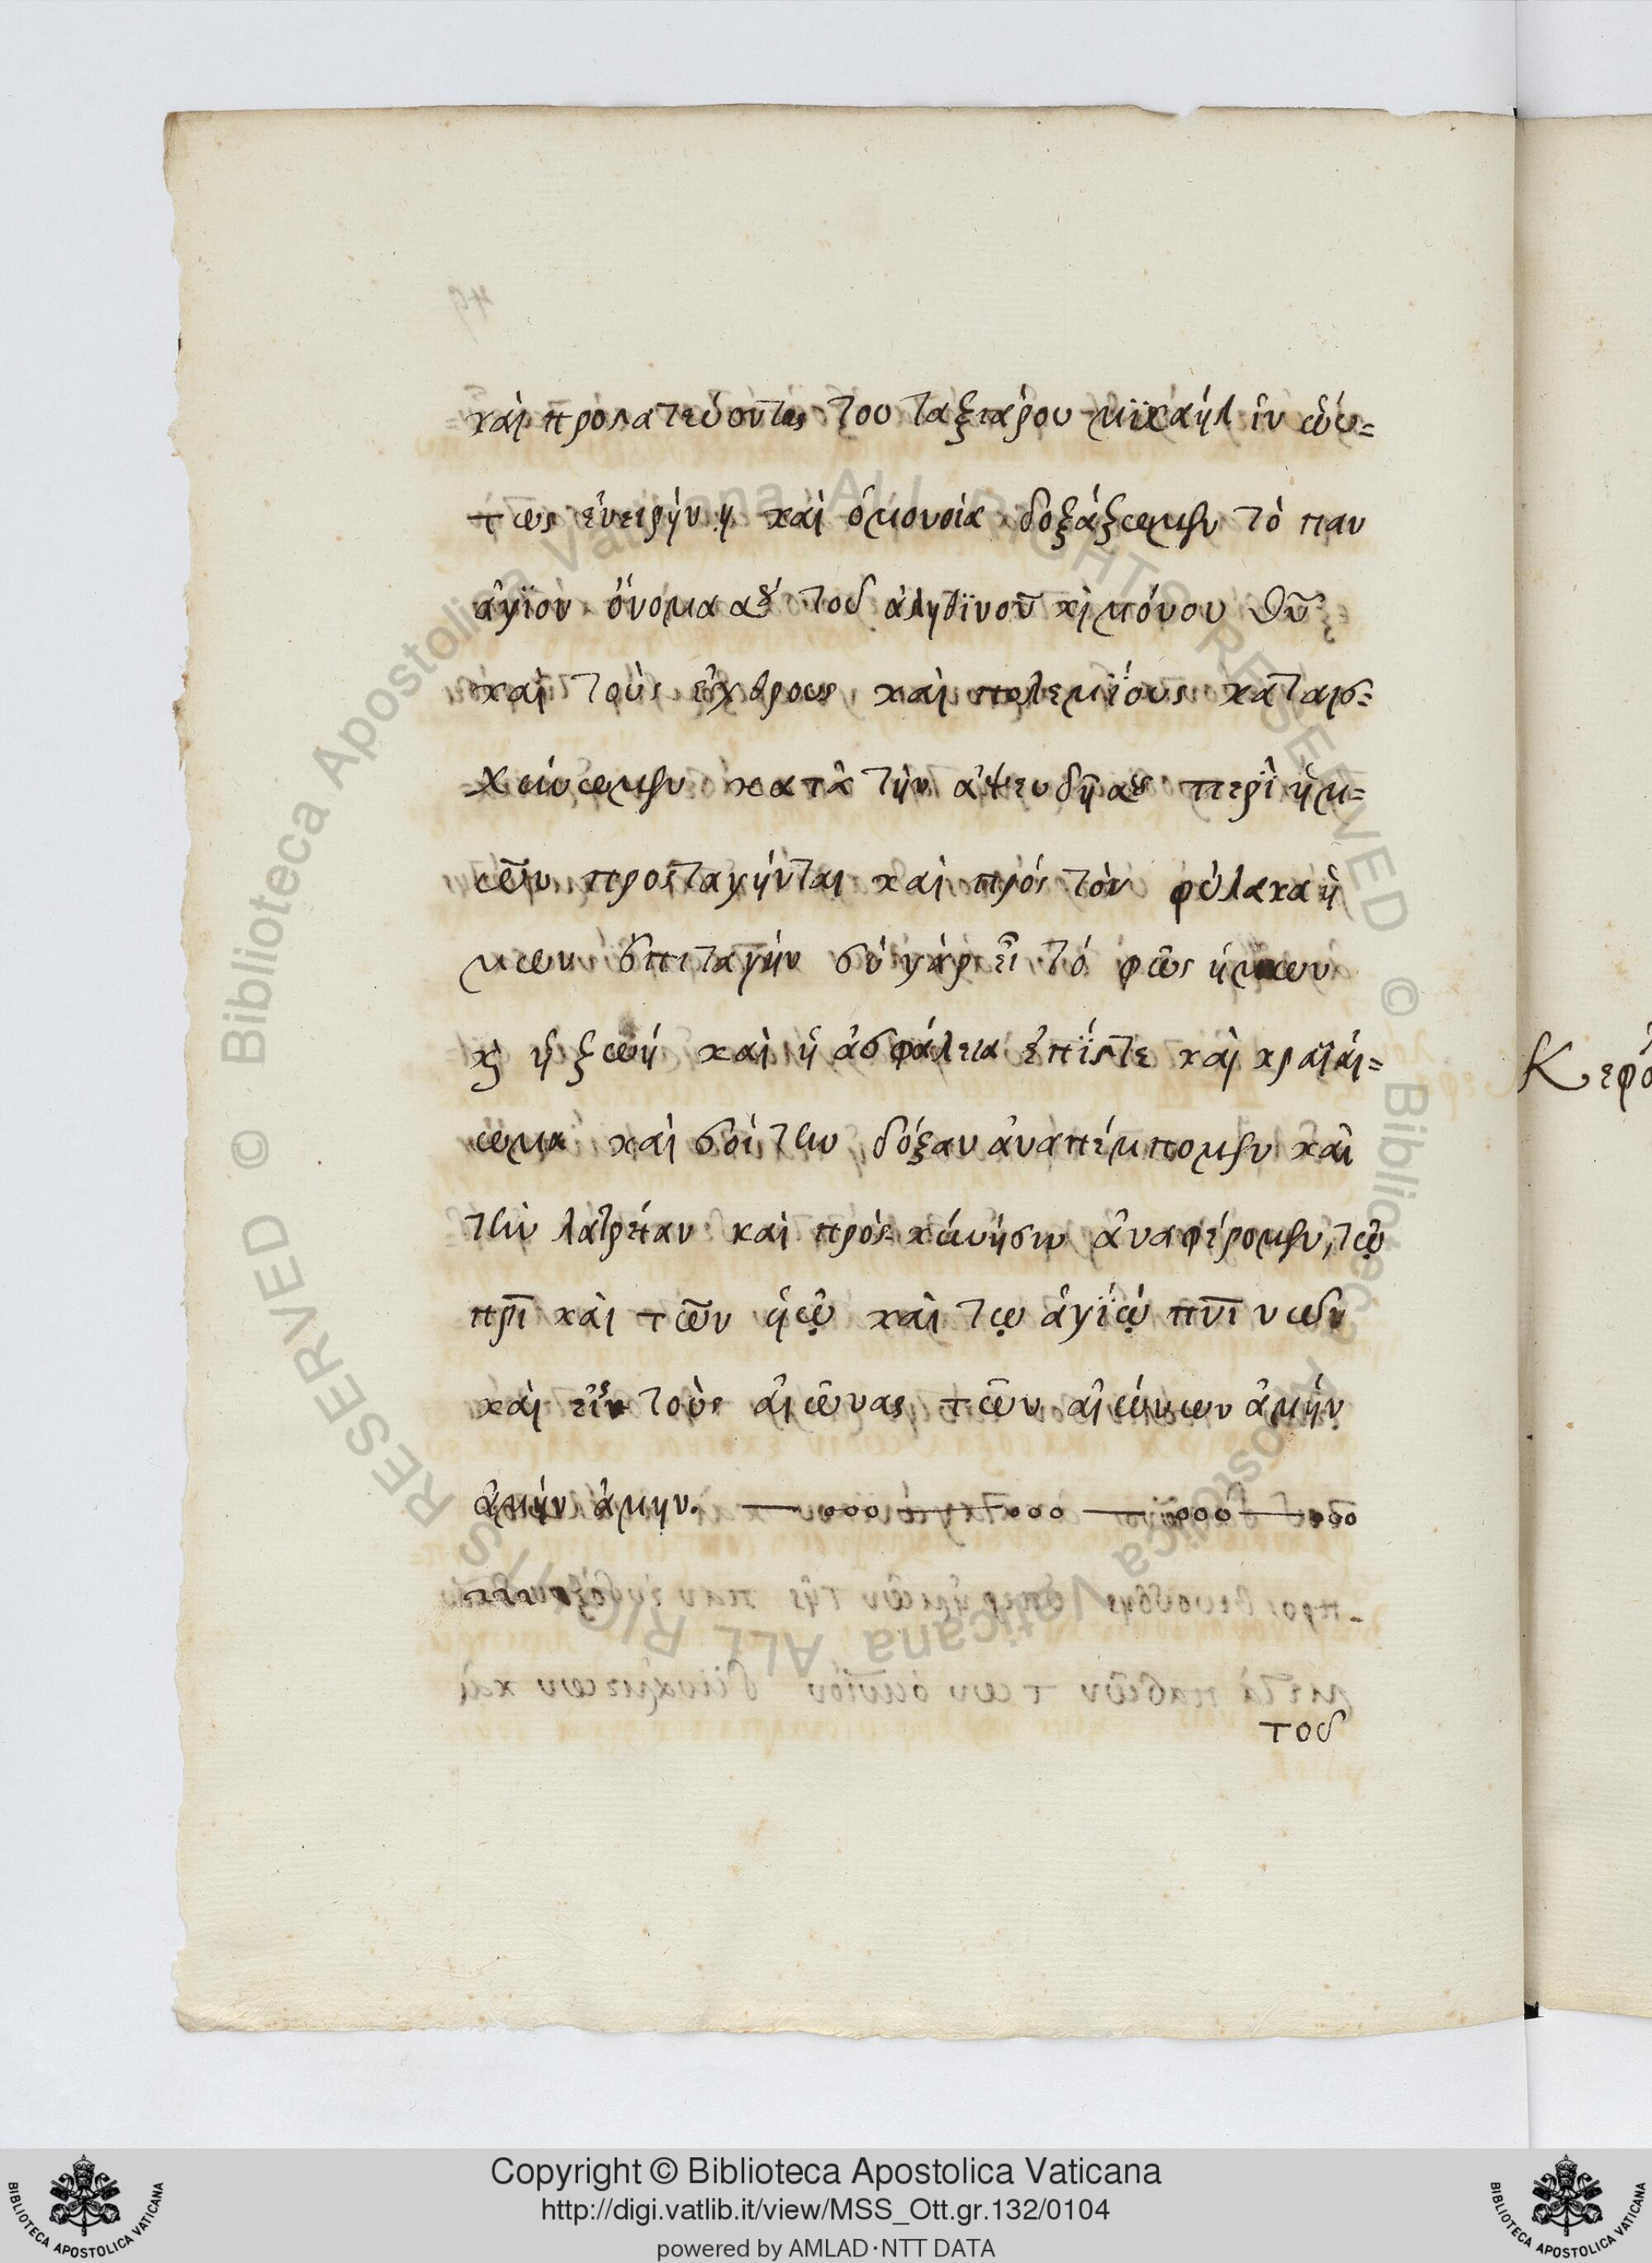 καὶ προστατεύοντες του ταξιαρου μϊχαήλ ἵν οὕ=
τως ἐνειρήν η καὶ ὁμονοία δοξάξωμεν τὸ παν
ἅγϊον ὄνομα σȣ́ τοῦ ἀληθϊνοῦ κὶ μόνου θῦ
καὶ τοὺς ἐχθρους καὶ πολεμΐους καταισ=
χείνωμεν κατὰ τὴν ἀψευδῆ σȣ περὶ ἡμ=
ῶν προςταγήνται καὶ πρός τὸν φύλακα ἡ
μων ἐπιταγήν σύ γάρ εἶ τό φῶς ἡμων
κ ἡ ξωή καὶ ἡ ἀσφάλεια ἐπΐστε καὶ κραταί=
ωμα καὶ σοί τὴν δόξαν ἀναπέμπομεν καὶ
τὴν λατρείαν καὶ πρός κύνήσιν ἀναφέρομεν, τῷ
πρῒ καὶ τῶν ϋῷ καὶ τῳ ἁγΐῳ πνῒ νων
καὶ εἰς τοὺς αἰῶνας τῶν αἰώνων ἀμήν
ἀμήν ἀμην. — ooo — ooo — ooo — ooo
τοῦ
Κεφά
Copyright © Biblioteca Apostolica Vaticana
http://digi.vatlib.it/view/MSS_Ott.gr.132/0104
powered by AMLAD·NTT DATA
BIBLIOTECA APOSTOLICA VATICANA
BIBLIOTECA APOSTOLICA VATICANA
© Biblioteca Apostolica Vaticana ALL RIGHTS RESERVED
© Biblioteca Apostolica Vaticana ALL RIGHTS RESERVED